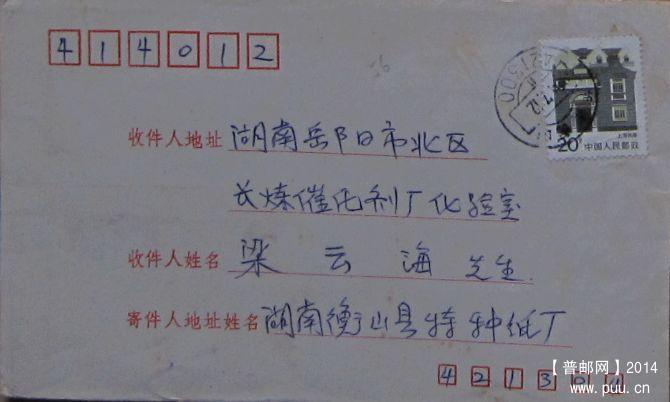 414012
收件人地址 湖南岳阳市北区
长炼催化剂厂化验室
收件人姓名 梁云海 先生
寄件人地址姓名 湖南衡山县特种纸厂
上海民居
20分 中国人民邮政
【普邮网】2014
www.puu.cn